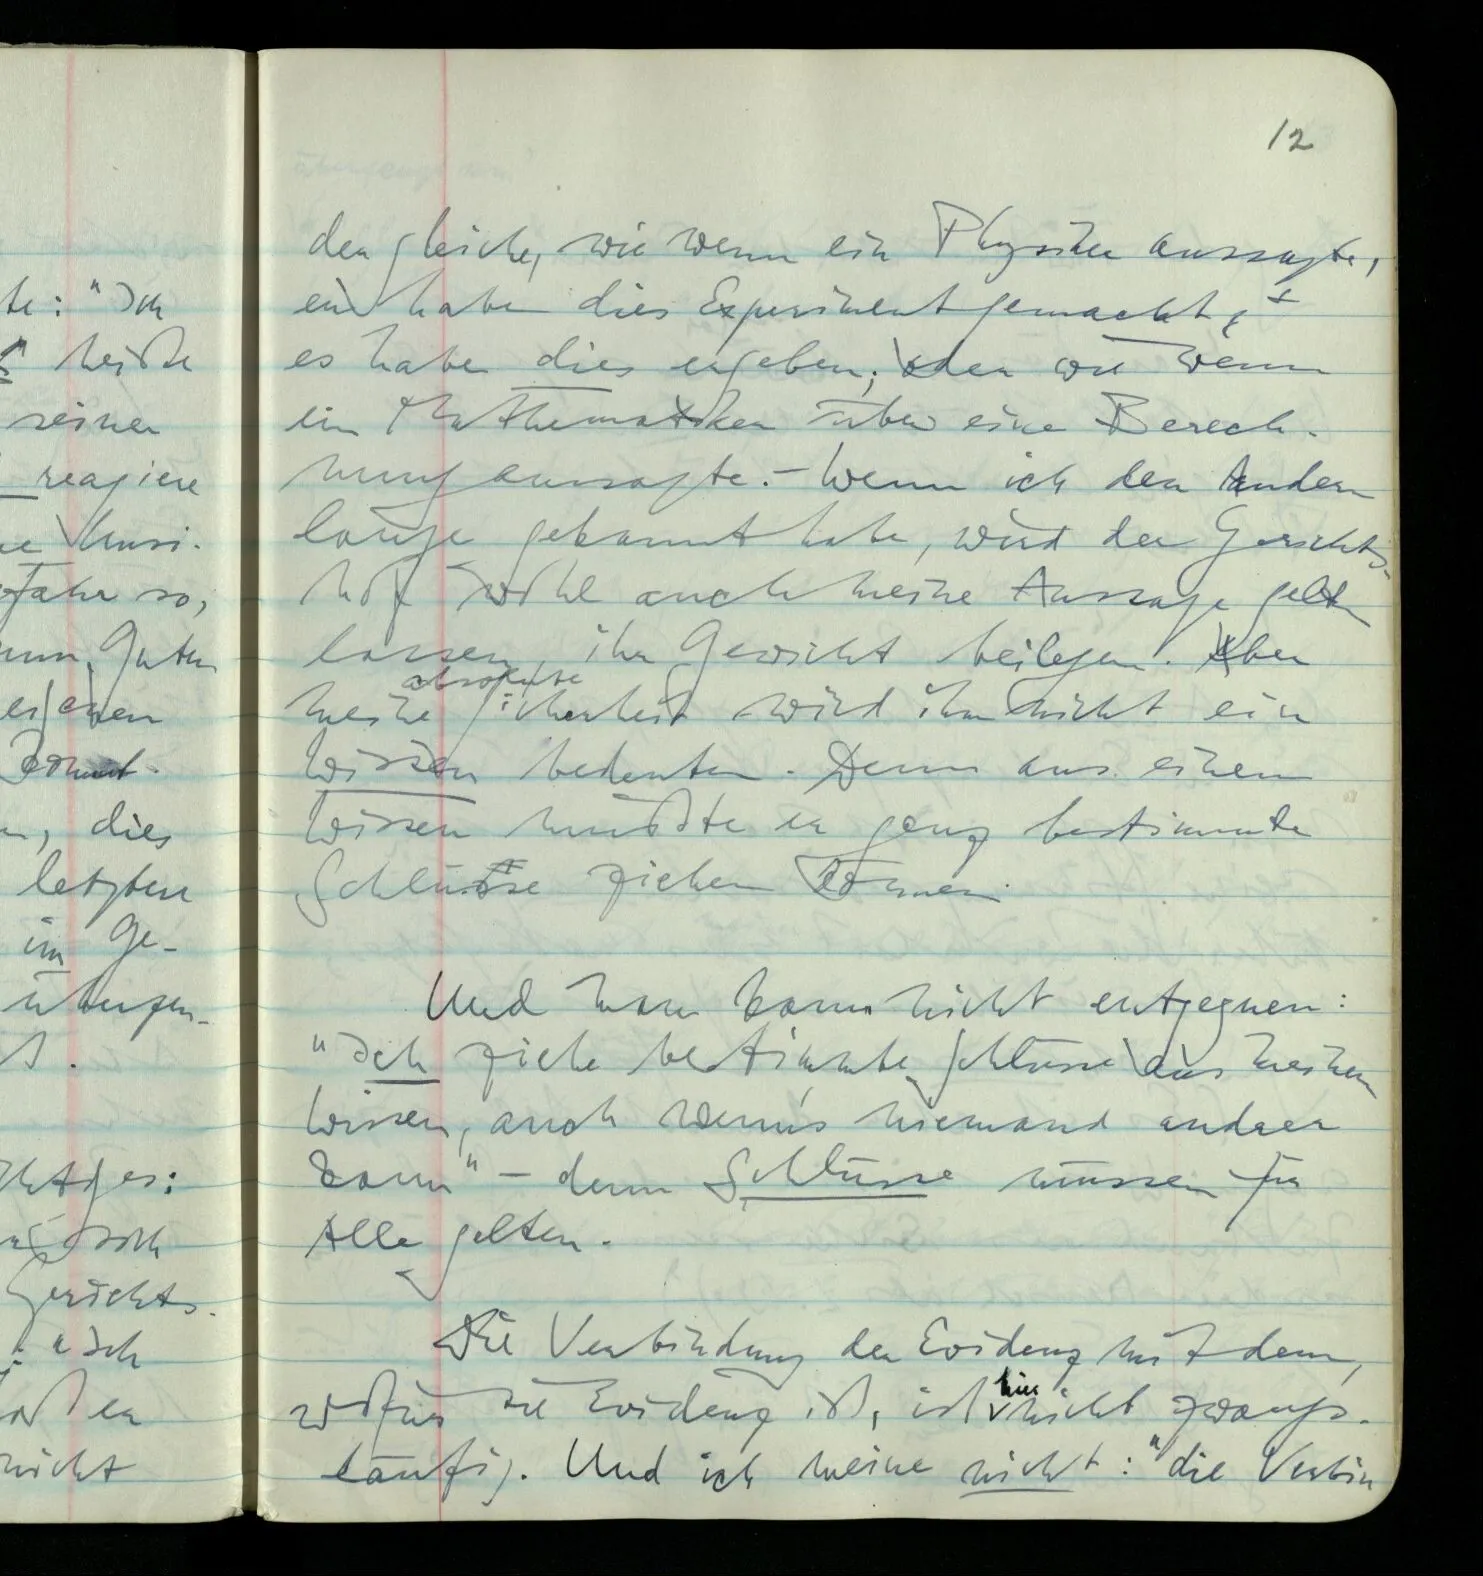 12
der gleiche, wie wenn ein Physiker aussagte,
er habe dies Experiment gemacht, +
es habe dies ergeben; oder wie wenn
ein Mathematiker über eine Berech-
nung aussagte. – Wenn ich den Andern
lange gekannt habe, wird der Gerichts-
hof wohl auch meine Aussage gelten
lassen, ihr Gewicht beilegen. Aber
absolute
meine Sicherheit wird ihm nicht ein
Wissen bedeuten. Denn aus einem
Wissen müßte er ganz bestimmte
Schlüsse ziehen können.
Und man kann nicht entgegnen:
"Ich ziehe bestimmte Schlüsse aus meinem
Wissen, auch wenn's niemand andrer
kann" – denn Schlüsse müssen für
Alle gelten.
Die Verbindung der Evidenz mit dem,
hier
wofür sie Evidenz ist, ist nicht zwangs-
läufig. Und ich meine nicht: "die Verbin
te: "Ich
heiße
seiner
reagiere
Musi-
so,
Guten
dies
letzten
im Ge-
überzeu-
sich
Gerichts-
"Ich
er
nicht